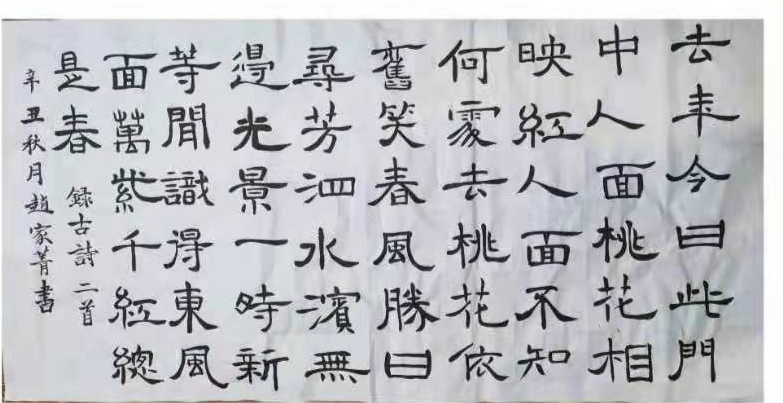 去年今日此門
中人面桃花相
映紅人面不知
何處去桃花依
舊笑春風勝日
尋芳泗水濱無
邊光景一時新
等閒識得東風
面萬紫千紅總
是春
録古詩二首
辛丑秋月趙家菁書